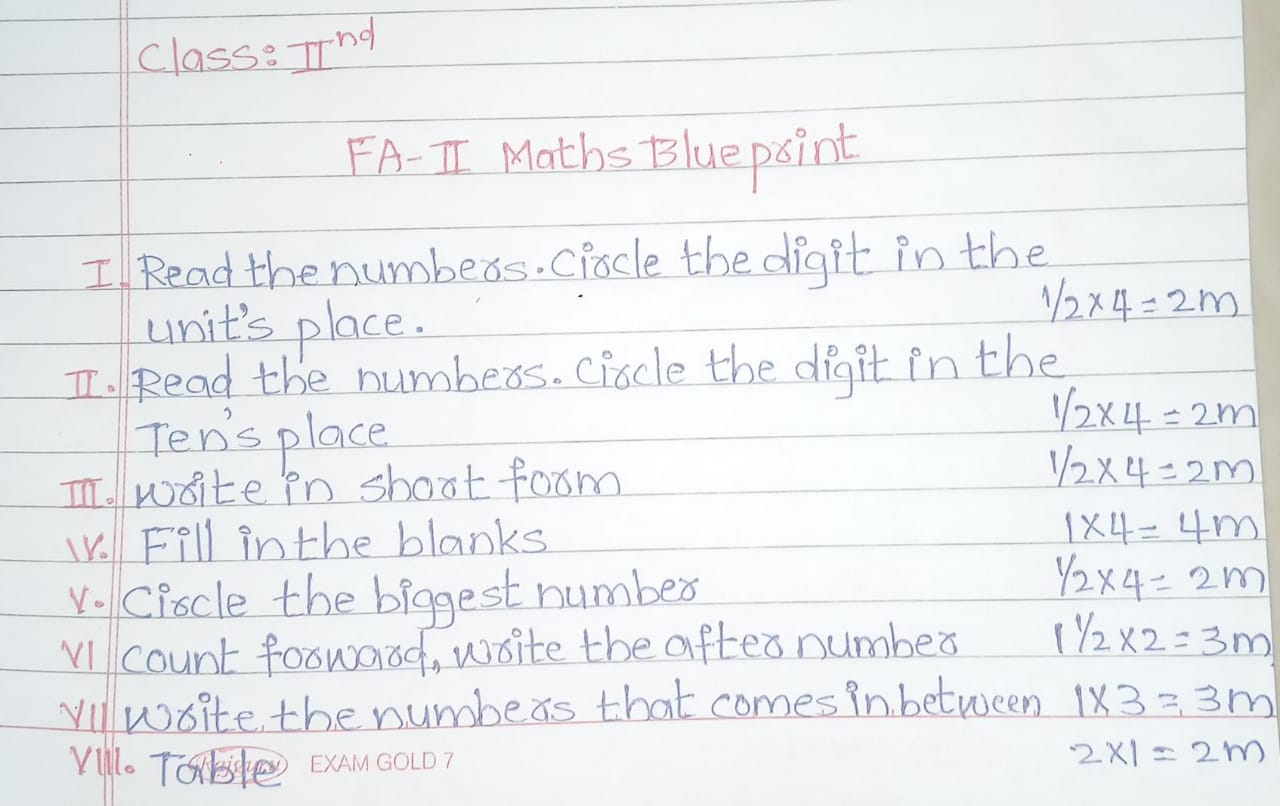 Class: IInd
FA-II Maths Blueprint
I. Read the numbers. Circle the digit in the
unit's place. 1/2 x 4 = 2m
II. Read the numbers. Circle the digit in the
Ten's place 1/2 x 4 = 2m
III. write in short form 1/2 x 4 = 2m
IV. Fill in the blanks 1 x 4 = 4m
V. Circle the biggest number 1/2 x 4 = 2m
VI count forward, write the after number 1 1/2 x 2 = 3m
VII write the numbers that comes in between 1 x 3 = 3m
VIII. Table 2 x 1 = 2m
EXAM GOLD 7